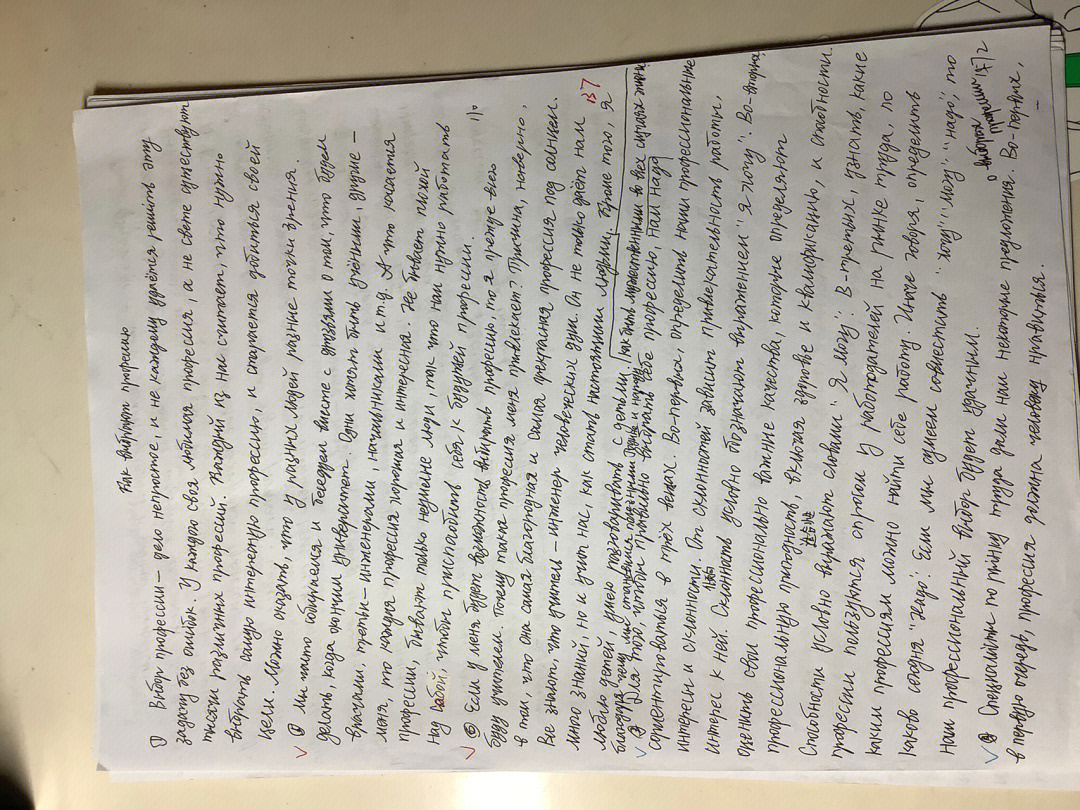 Как выбирают профессию
① Выбор профессии – дело непростое, и не каждому удаётся решить эту
задачу без ошибок. У каждого своя любимая профессия, а на свете существуют
тысячи различных профессий. Каждый из нас считает, что нужно
выбрать самую интересную профессию, и старается добиться своей
цели. Можно сказать, что у разных людей разные точки зрения.
Мы часто собираемся и беседуем вместе с друзьями о том, что будем
делать, когда окончим университет. Одни хотят быть учёными, другие –
врачами, третьи – инженерами, начальниками и т.д. А что касается
меня, то каждая профессия хорошая и интересная. Не бывает плохой
профессии, бывают только неумелые люди, так что нам нужно работать
над собой, чтобы приспособить себя к будущей профессии.
Если у меня будет возможность выбирать профессию, то я прежде всего
буду учителем. Почему такая профессия меня привлекает? Причина, наверно,
в том, что она самая благородная и самая прекрасная профессия под солнцем.
Все знают, что учитель – инженер человеческих душ. Он не только даёт нам
много знаний, но и учит нас, как стать настоящими людьми, 137
люблю детей, умею разговаривать с детьми, Кроме того, я
как быть мужественными во всех случаях жизни,
благодаря чему мы становимся полезными Родине и народу.
Для того, чтобы правильно выбрать себе профессию, нам надо
сориентироваться в трёх вещах. Во-первых, определить наши профессиональные
интересы и склонности. От склонностей зависит привлекательность работы,
интерес к ней. Склонность условно обозначают выражением "я хочу". Во-вторых,
оценить свои профессионально важные качества, которые определяют
профессиональную пригодность, включая здоровье и квалификацию, и способности.
Способности условно выражают словами "я могу". В-третьих, узнать, какие
профессии пользуются спросом у работодателей на рынке труда, по
каким профессиям можно найти себе работу. Иначе говоря, определить
каково сегодня "надо". Если мы сумеем совместить "хочу" "могу" "надо", то
наш профессиональный выбор будет удачным.
о выборе профессии 17/2
Специалисты по рынку труда дали нам некоторые предложения. Во-первых,
в первую очередь, профессия должна человеку нравиться.